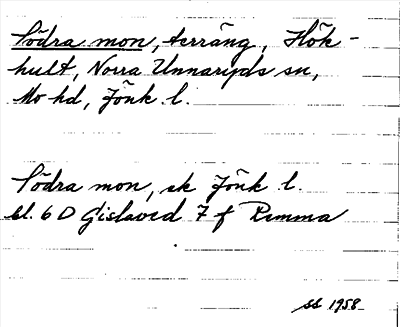 Södra mon, terräng, Hök-
hult, Norra Unnaryds sn,
Mo hd, Jönk. l.
Södra mon, sk Jönk. l.
bl. 6 D Gislaved 7 f Remma
SS 1958